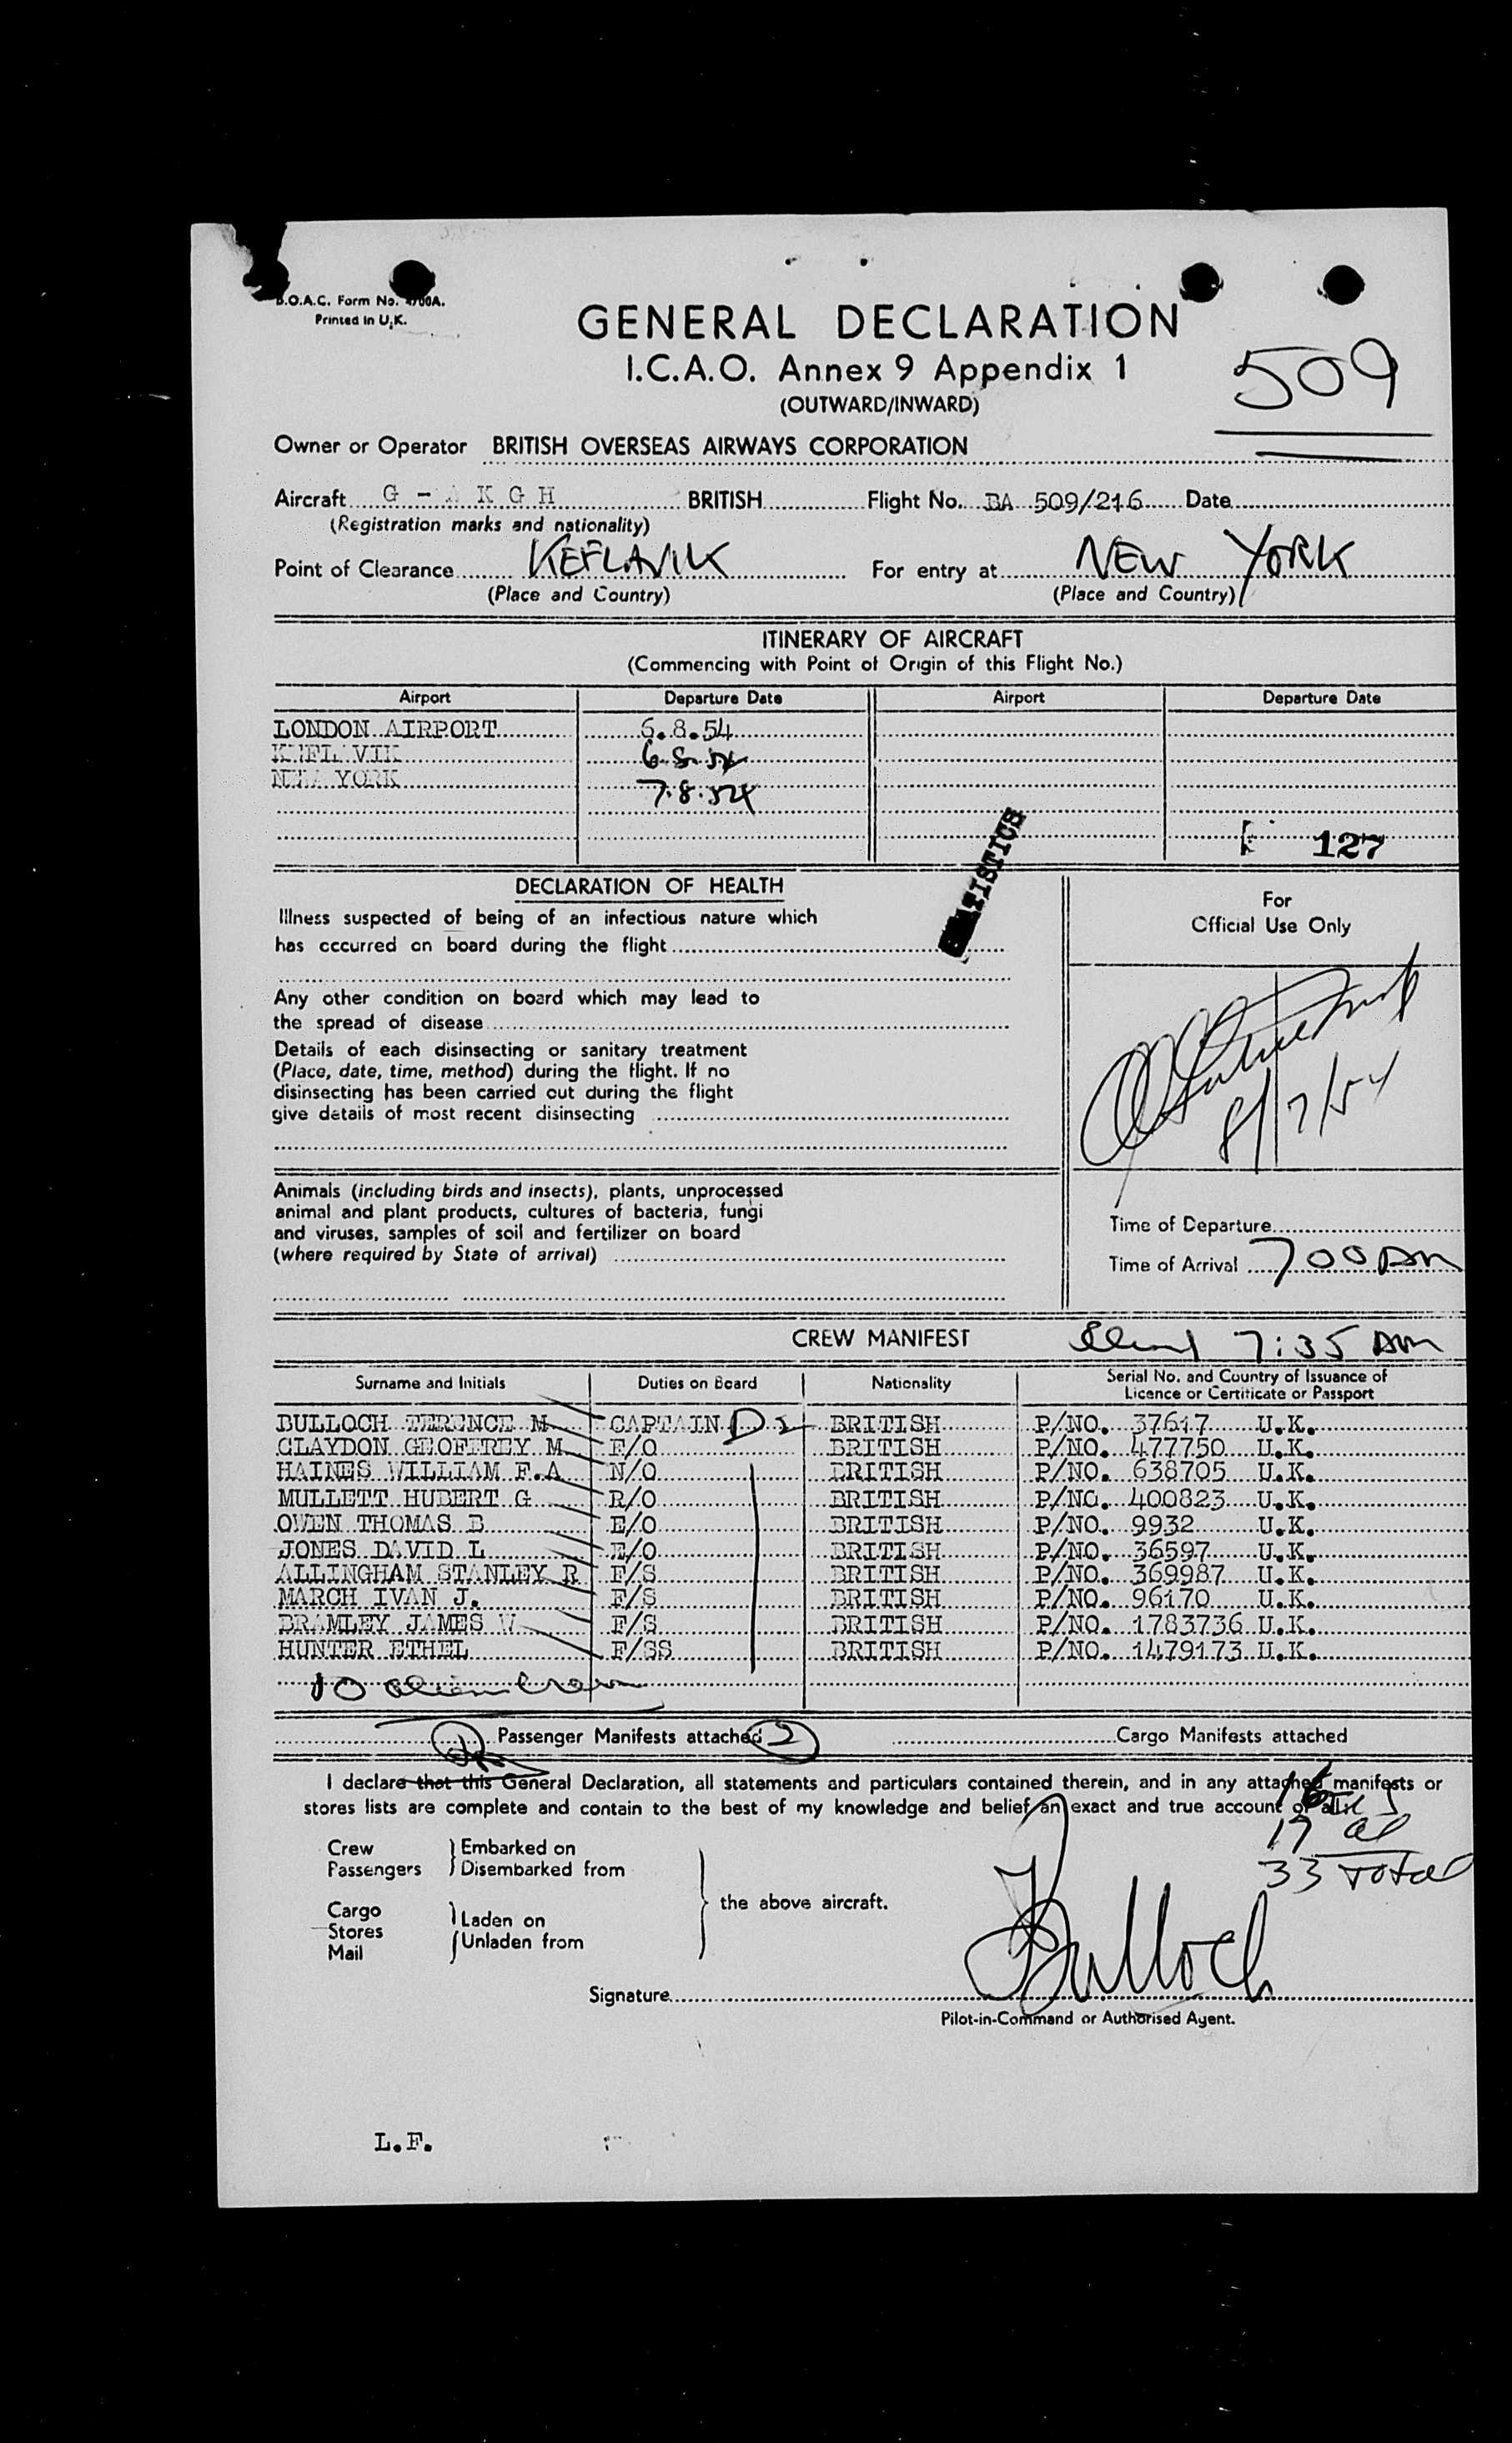 B.O.A.C. Form No. 4700A.
Printed in U.K.
GENERAL DECLARATION
I.C.A.O. Annex 9 Appendix 1
(OUTWARD/INWARD)
509
Owner or Operator BRITISH OVERSEAS AIRWAYS CORPORATION
Aircraft G - A K G H BRITISH Flight No. BA 509/216 Date
(Registration marks and nationality)
Point of Clearance KEFLAVIK For entry at NEW YORK
(Place and Country) (Place and Country)
ITINERARY OF AIRCRAFT
(Commencing with Point of Origin of this Flight No.)
Airport Departure Date Airport Departure Date
LONDON AIRPORT 6.8.54
KEFLAVIK 6.8.54
NEW YORK 7.8.54
127
DECLARATION OF HEALTH
Illness suspected of being of an infectious nature which
has occurred on board during the flight
Any other condition on board which may lead to
the spread of disease
Details of each disinsecting or sanitary treatment
(Place, date, time, method) during the flight. If no
disinsecting has been carried out during the flight
give details of most recent disinsecting
STATISTICS
For
Official Use Only
8/7/54
Animals (including birds and insects), plants, unprocessed
animal and plant products, cultures of bacteria, fungi
and viruses, samples of soil and fertilizer on board
(where required by State of arrival)
Time of Departure
Time of Arrival 700 AM
CREW MANIFEST 7:35 AM
Surname and Initials Duties on Board Nationality Serial No. and Country of Issuance of
Licence or Certificate or Passport
BULLOCH TERENCE M CAPTAIN D 2 BRITISH P/NO. 37617 U.K.
CLAYDON GEOFFREY M F/O BRITISH P/NO. 477750 U.K.
HAINES WILLIAM F.A N/O BRITISH P/NO. 638705 U.K.
MULLETT HUBERT G R/O BRITISH P/NO. 400823 U.K.
OWEN THOMAS B E/O BRITISH P/NO. 9932 U.K.
JONES DAVID L E/O BRITISH P/NO. 36597 U.K.
ALLINGHAM STANLEY R F/S BRITISH P/NO. 369987 U.K.
MARCH IVAN J. F/S BRITISH P/NO. 96170 U.K.
BRAMLEY JAMES W F/S BRITISH P/NO. 1783736 U.K.
HUNTER ETHEL F/SS BRITISH P/NO. 1479173 U.K.
10 alien Crew
Passenger Manifests attached 2 Cargo Manifests attached
I declare that this General Declaration, all statements and particulars contained therein, and in any attached manifests or
stores lists are complete and contain to the best of my knowledge and belief an exact and true account of all:
16
17 al
33 Total
Crew Embarked on
Passengers Disembarked from
the above aircraft.
Cargo Laden on
Stores
Mail Unladen from
Signature TBulloch
Pilot-in-Command or Authorised Agent.
L.F.